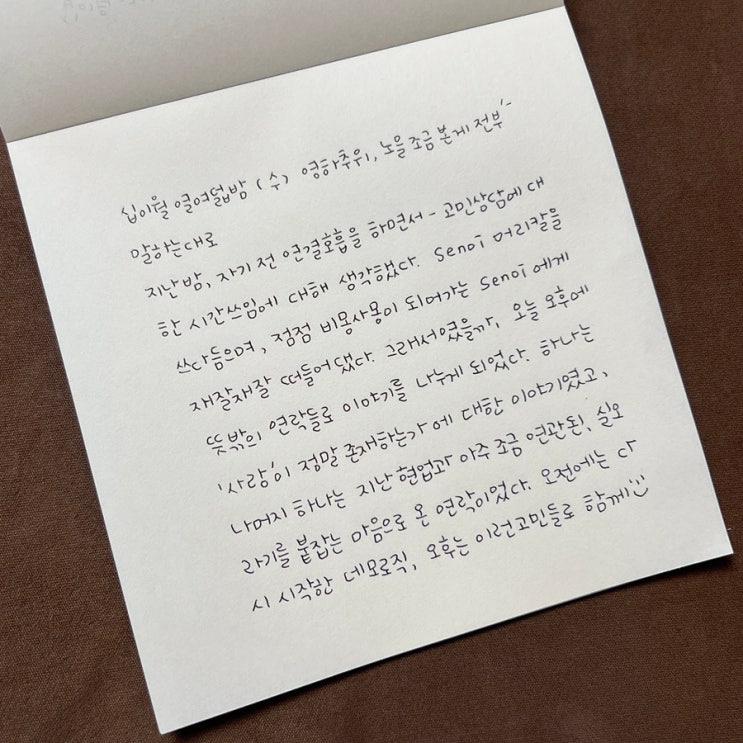 십이월 열여덟밤 (수) 영하추위, 노을 조금 본게 전부
말하는대로
지난 밤, 자기 전 연결호흡을 하면서 - 고민상담에 대
한 시간쓰임에 대해 생각했다. Senoi 머리칼을
쓰다듬으며, 점점 비몽사몽이 되어가는 Senoi 에게
재잘재잘 떠들어댔다. 그래서였을까, 오늘 오후에
뜻밖의 연락들로 이야기를 나누게 되었다. 하나는
'사랑'이 정말 존재하는가 에 대한 이야기였고,
나머지 하나는 지난 현업과 아주 조금 연관된, 실오
라기를 붙잡는 마음으로 온 연락이었다. 오전에는 다
시 시작한 네모로직, 오후는 이런고민들로 함께!